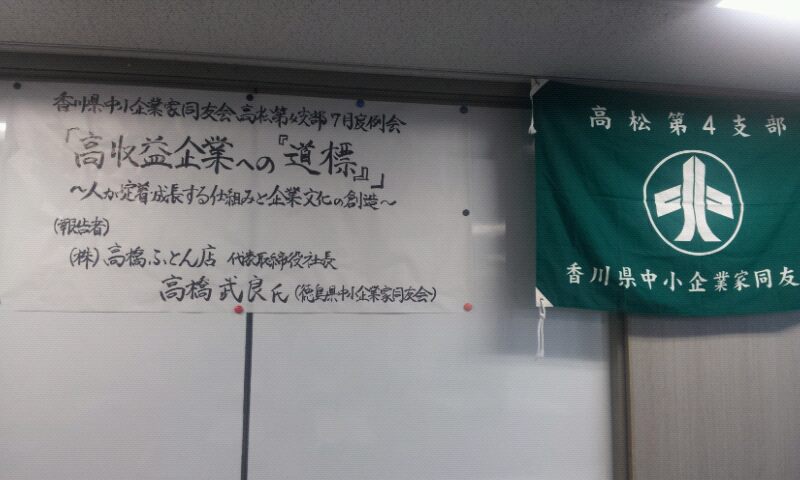 香川県中小企業家同友会高松第4支部7月度例会
「高収益企業への『道標』」
～人が定着成長する仕組みと企業文化の創造～
(報告者)
(株)高橋ふとん店 代表取締役社長
高橋武良氏(徳島県中小企業家同友会)
高松第4支部
香川県中小企業家同友